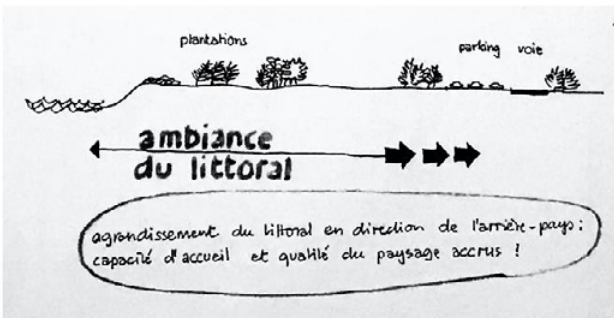 plantations
parking voie
ambiance
du littoral
agrandissement du littoral en direction de l'arrière-pays:
capacité d'accueil et qualité du paysage accrus !